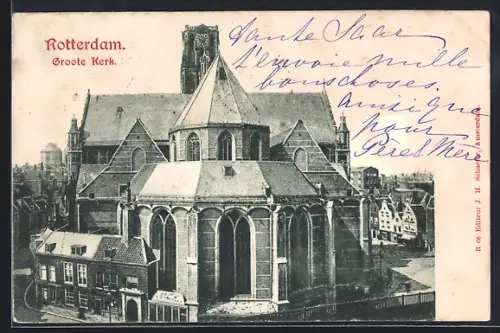 Rotterdam.
Groote Kerk.
Tante Saar
t'envoie mille
bons choses.
Ainsi que
pour
Père & Mère
R 66 Editeur J. H. Schaefer, Amsterdam